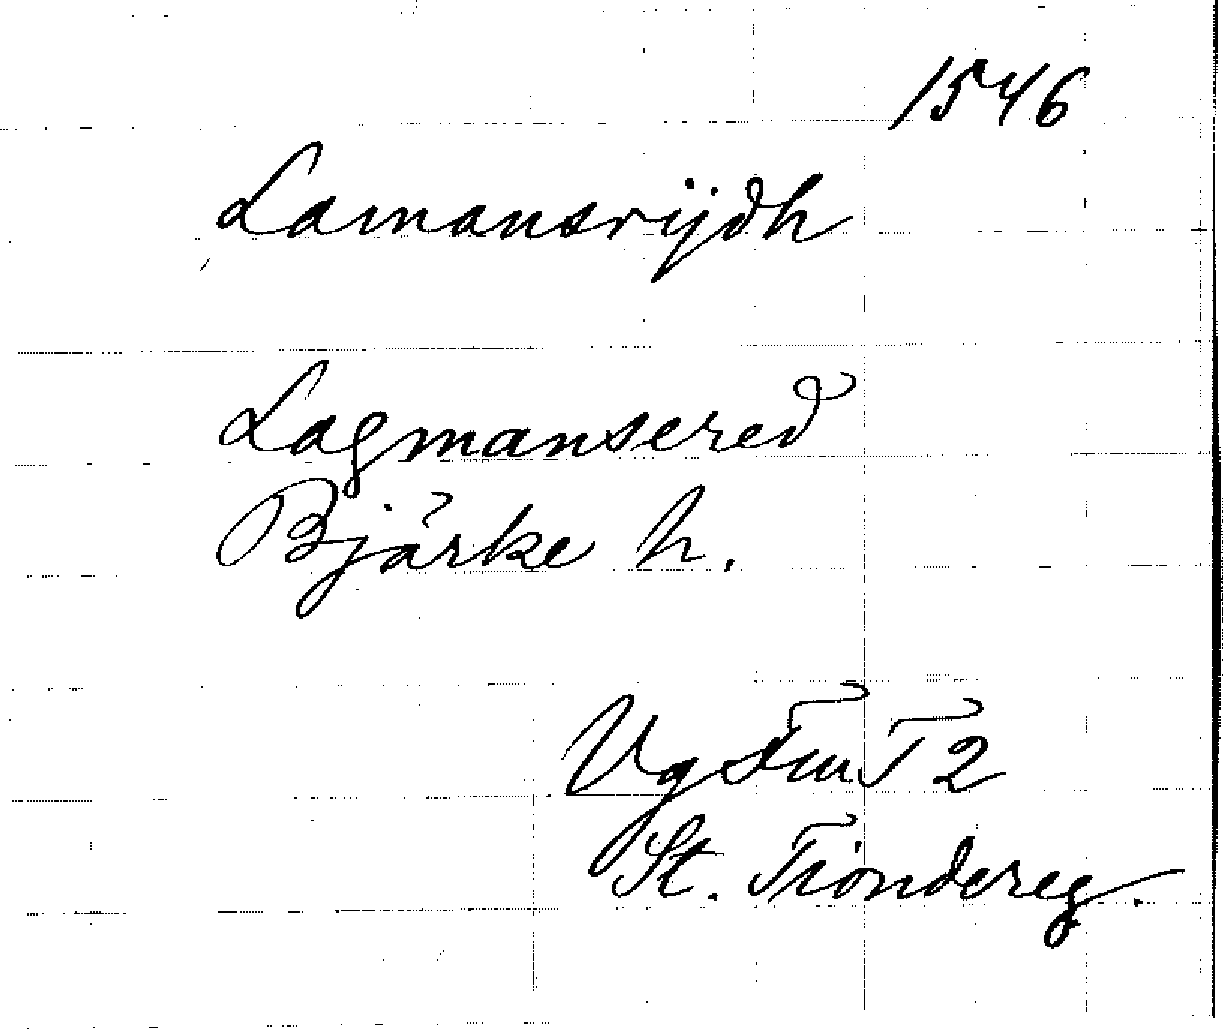 1546
Lamansrijdh
Lagmansered
Bjärke h.
Vg T 2
St. Tiondereg.